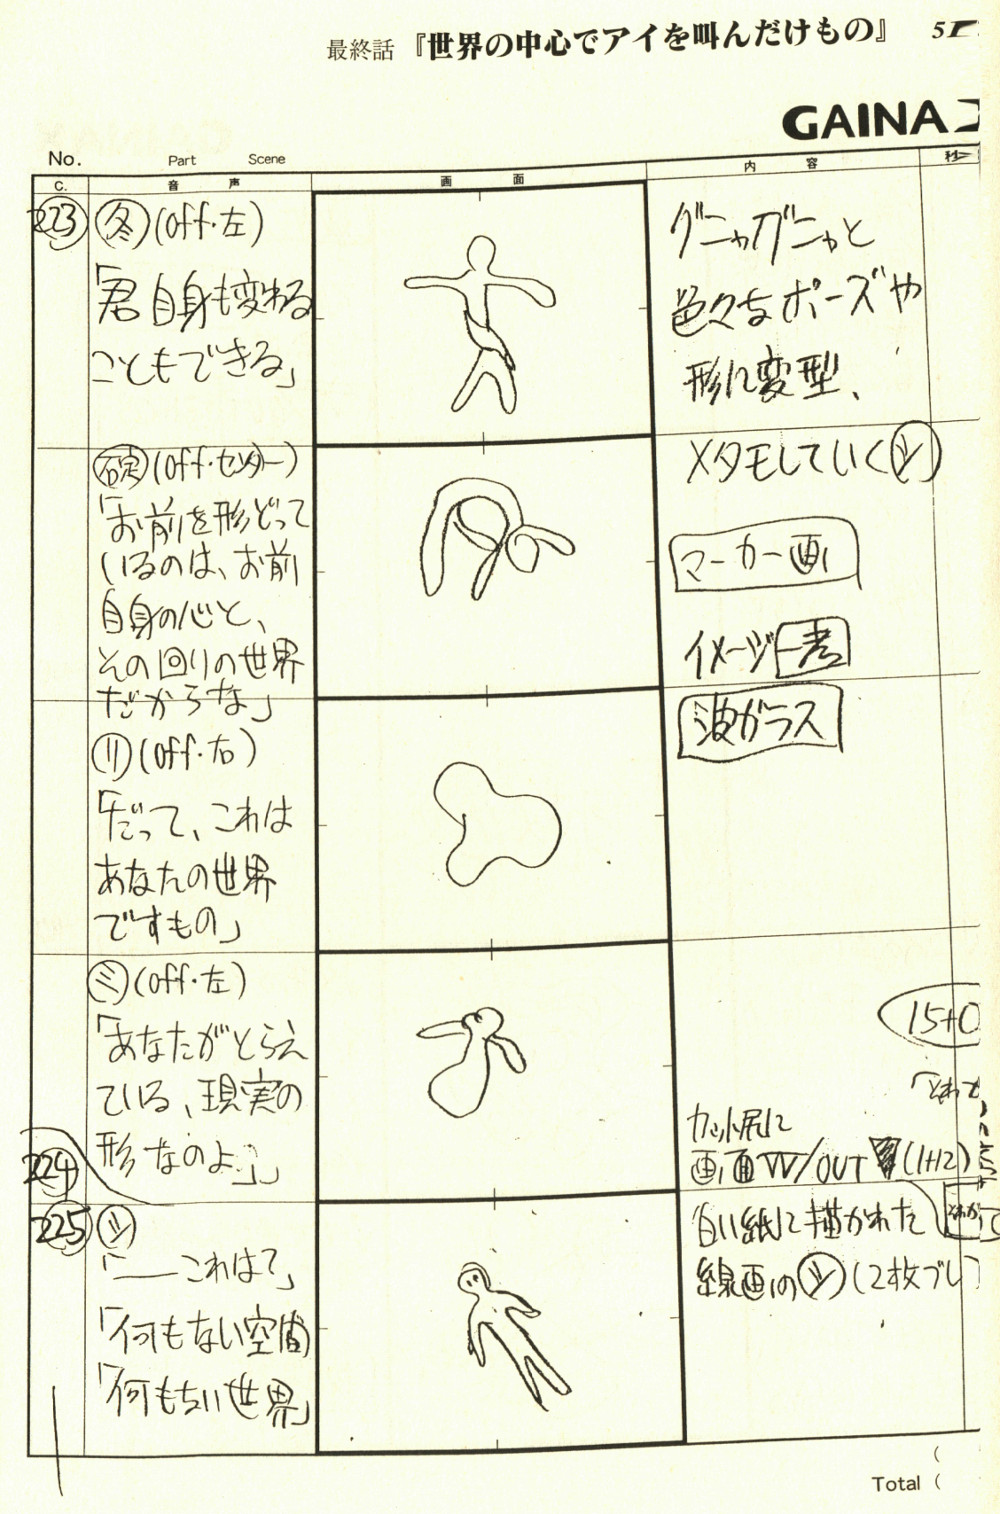 最終話 『世界の中心でアイを叫んだけもの』
GAINA
No. Part Scene
C. 音声 画面 内容 秒
223
冬 (off・左)
「君自身も変わる
こともできる」
グニャグニャと
色々なポーズや
形に変型、
碇 (off・センター)
「お前を形どって
いるのは、お前
自身の心と、
その回りの世界
だからな」
メタモしていくシ
マーカー画
イメージ一考
波ガラス
リ (off・右)
「だって、これは
あなたの世界
ですもの」
ミ (off・左)
「あなたがとらえ
ている、現実の
形なのよ」
15+0
カット尻に
画面W/OUT (1+12)
224
225
シ
「——これは?」
「何もない空間
「何もない世界」
白い紙に描かれた
線画のシ (2枚ブレ
Total (